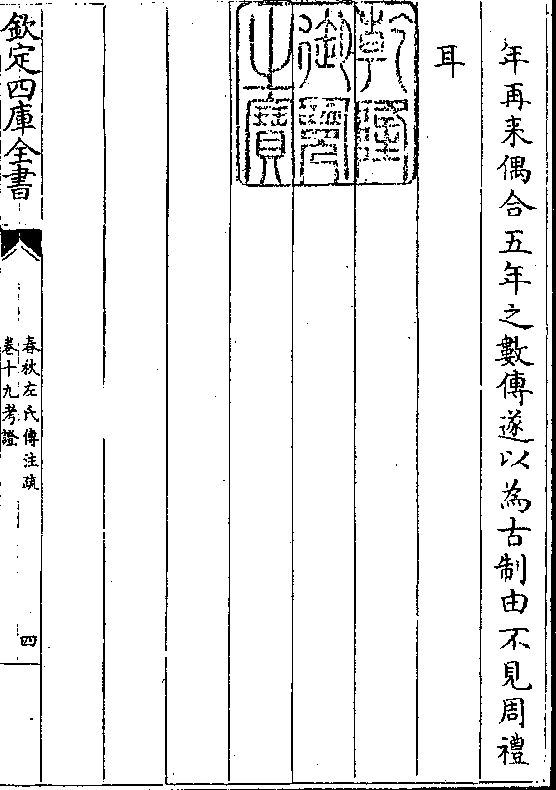 年再来偶合五年之數傳遂以為古制由不見周禮
耳
乾隆
御覽
之寶
欽定四庫全書
春秋左氏傳注疏
卷十九考證
四